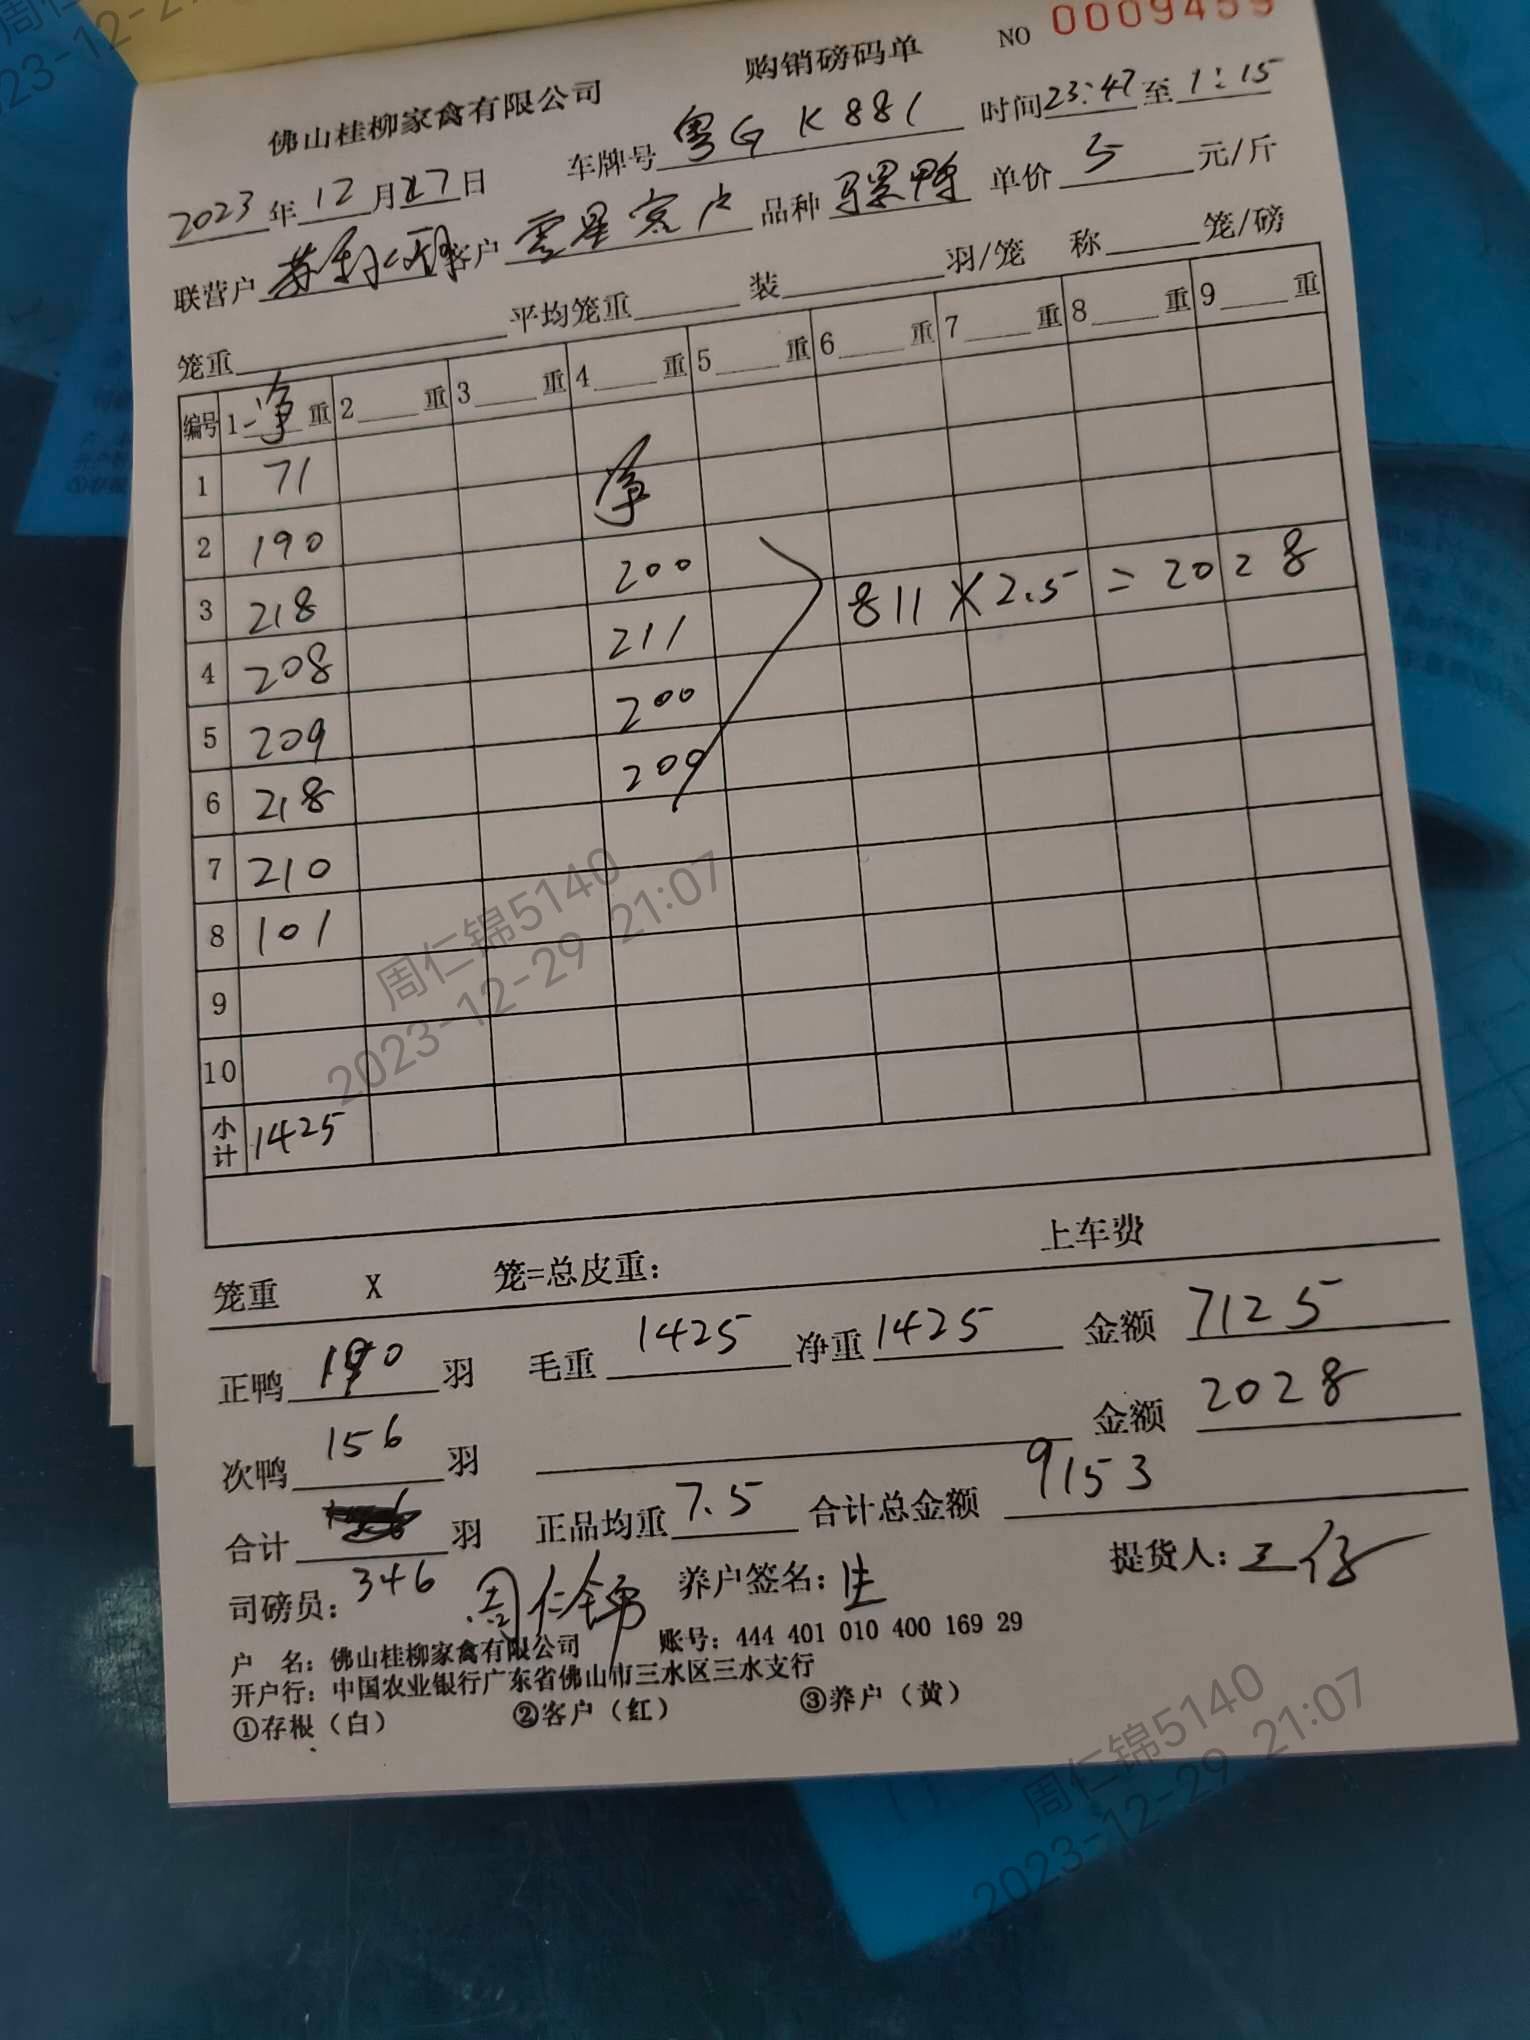 佛山桂柳家禽有限公司 购销磅码单 NO 0009459
2023年12月27日 车牌号 粤G K881 时间23:47至1:15
联营户 客户 零星客户 品种 骡鸭 单价 5 元/斤
笼重 平均笼重 装 羽/笼 称 笼/磅
编号 1 净 重 2 重 3 重 4 重 5 重 6 重 7 重 8 重 9 重
1 71 净
2 190 200
3 218 211 811×2.5=2028
4 208 200
5 209 209
6 218
7 210
8 101
9
10
小计 1425
笼重 X 笼=总皮重: 上车费
正鸭 190 羽 毛重 1425 净重 1425 金额 7125
次鸭 156 羽 金额 2028
合计 346 羽 正品均重 7.5 合计总金额 9153
司磅员: 周仁锦 养户签名: 生 提货人: 王仔
户 名: 佛山桂柳家禽有限公司 账号: 444 401 010 400 169 29
开户行: 中国农业银行广东省佛山市三水区三水支行
①存根(白) ②客户(红) ③养户(黄)
周仁锦5140
2023-12-29 21:07
周仁锦5140
2023-12-29 21:07